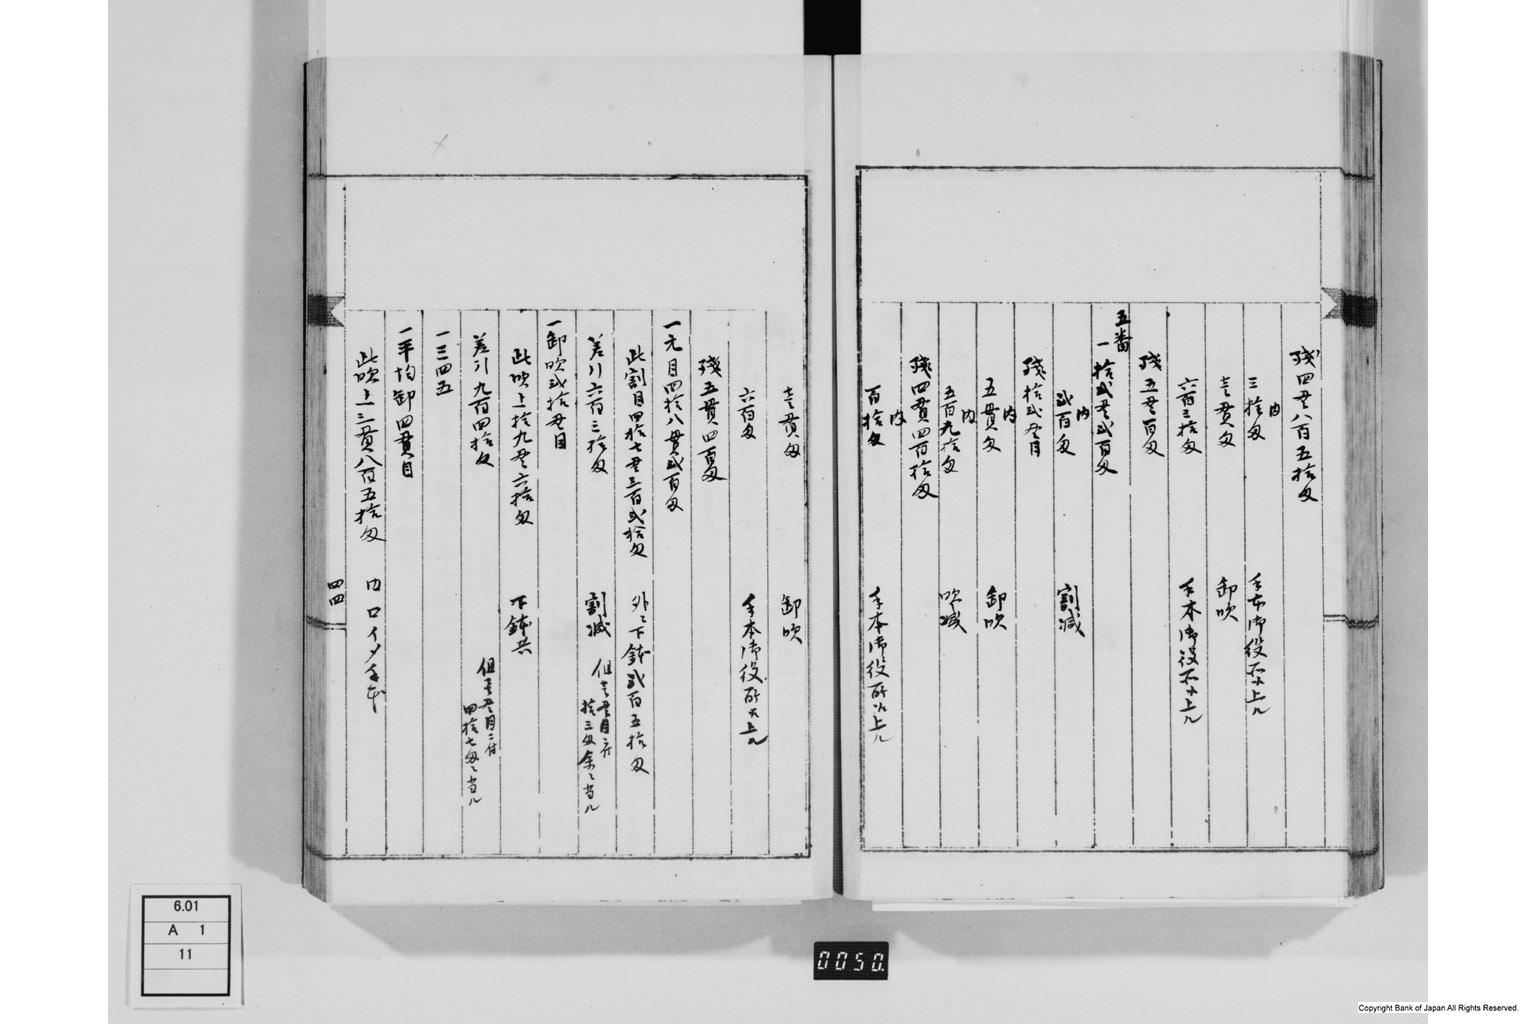 残四貫八百五拾匁
内
三拾匁　手本御役所へ上ル
壱貫匁　卸吹
六百三拾匁　手本御役所へ上ル
残五貫百匁
五番
一拾弐貫弐百匁
内
弐百匁　割減
残拾弐貫目
内
五貫匁　卸吹
内
五百九拾匁　吹減
残四貫四百拾匁
内
百拾匁　手本御役所へ上ル
壱貫匁　卸吹
六百匁　手本御役所へ上ル
残五貫四百匁
一元目四拾八貫弐百匁
此割目四拾七貫三百弐拾匁　外ニ下鉢弐百五拾匁
差引六百三拾匁　割減　但壱貫目ニ付
拾三匁余ニ当ル
一卸吹弐拾貫目
此吹上拾九貫六拾匁　下鉢共
差引九百四拾匁　但壱貫目ニ付
四拾七匁ニ当ル
一三四五
一平均卸四貫目
此吹上三貫八百五拾匁　内ロイ手本
四四
0050.
6.01
A 1
11
Copyright Bank of Japan All Rights Reserved.